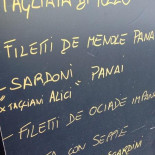 TAGLIATA DI TONNO
FILETTI DE MENOLE PANA
- SARDONI PANAI
* TAGLIANI ALICI
- FILETTI DE OCIADE IMPANA
CON SEPPIE
SGARDINI